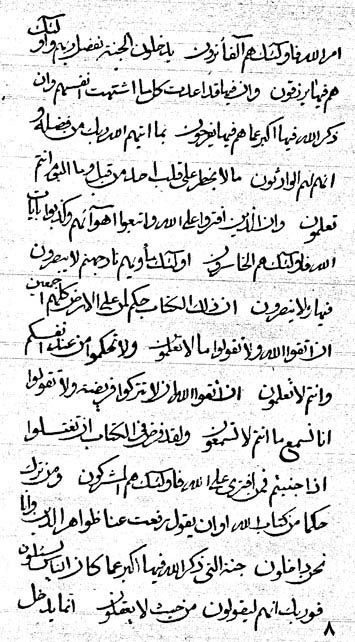 امر الله فاولئك هم الفائزون يدخلون الجنة بفضل ربهم واولئك
هم فيها يرزقون وان فيها قد اعدت كل ما اشتهت انفسهم وان
ذكر الله فيها اكبر عما هم فيها يفرحون بما اتيهم الله ربك من فضله و
انهم لهم الوارثون مالا يخطر على قلب احد من قبل وما انتم
تعلمون وان الذين افتروا على الله واتبعوا اهوآئهم وكذبوا بايات
الله فاولئك هم الخاسرون اولئك مأويهم نار جهنم لا ينصرون
فيها ولا ينصرون ان ذلك الكتاب حكم لمن على الارض كلهم اجمعين
ان اتقوا الله ولا تقولوا ما لا تعلمون ولا تحكموا من عند انفسكم
وانتم لا تعلمون ان اتقوا الله ان لا تتركوا فريضته ولا تقولوا
انا نسمع ما انتم لا تسمعون ولقد فرض في الكتاب ان تغتسلوا
اذا جنبتم فمن افترى على الله فاولئك هم المشركون ومن ترك
حكما من كتاب الله او ان يقول رفعت عنا ظواهر الدين وانا
نحن داخلون جنة التي ذكر الله فيها اكبر عما كان الناس يسئلون
فوربك انهم ليقولون من حيث لا يعقلون انما يدخل
٨